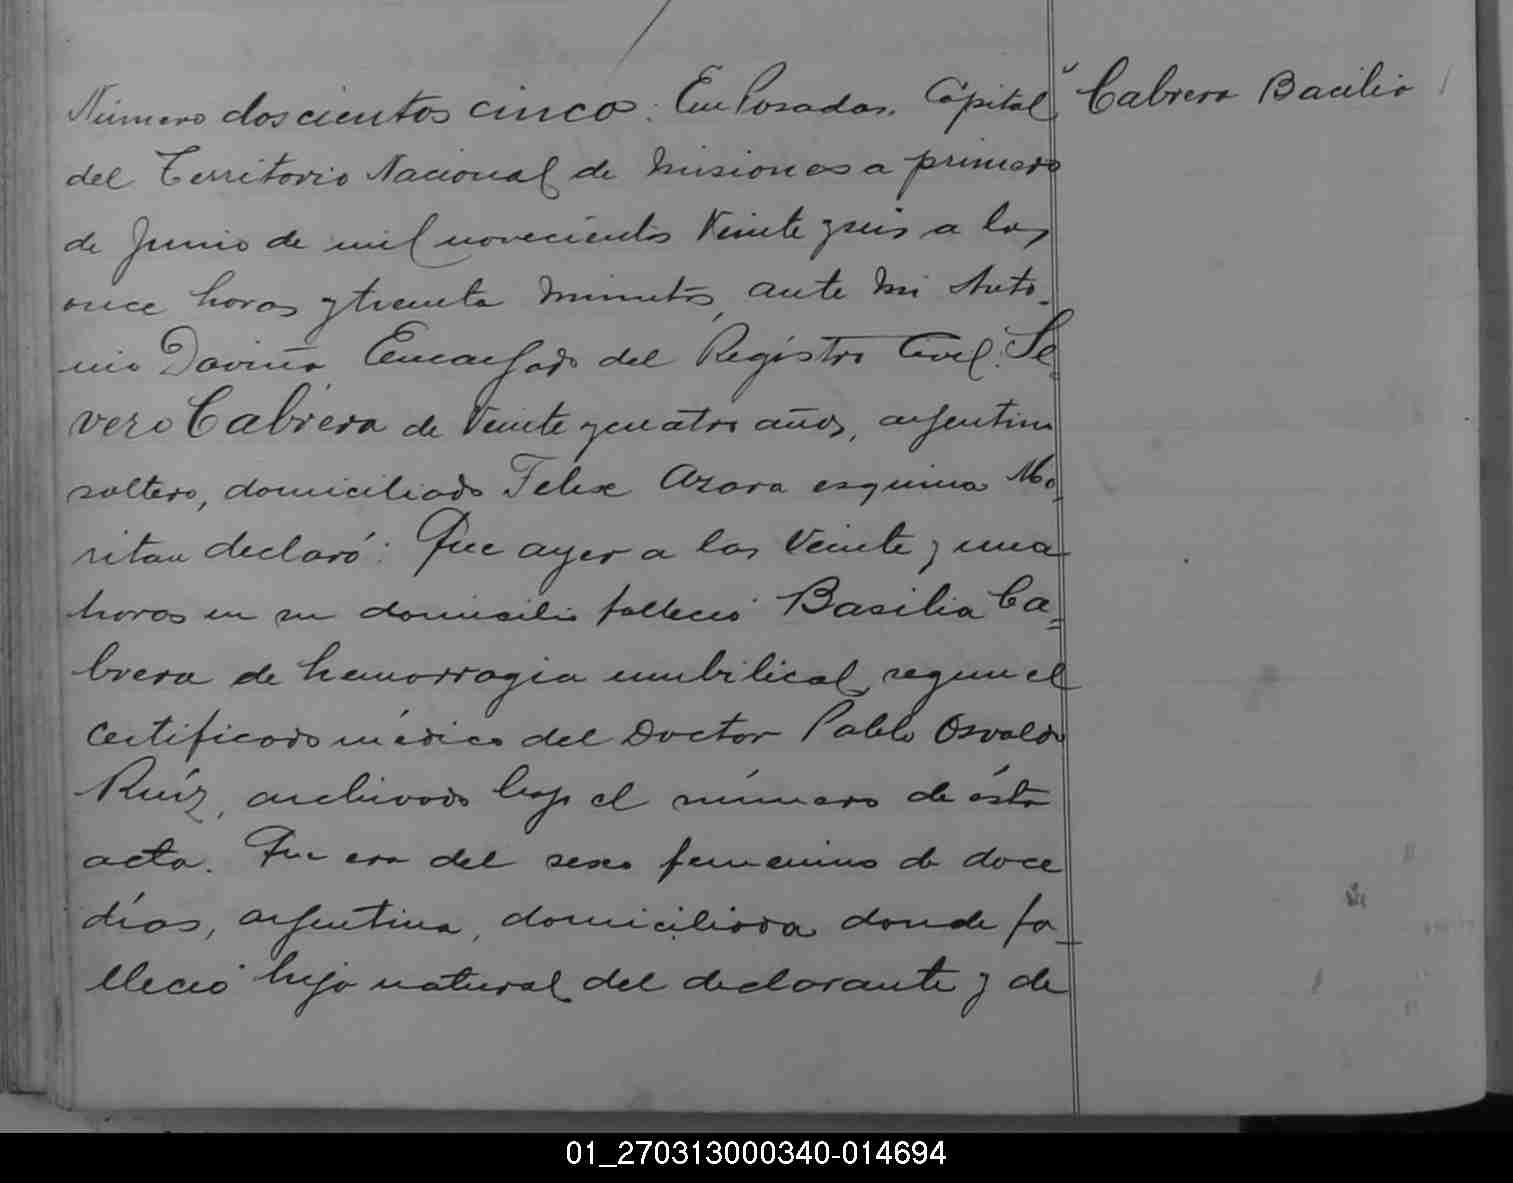 Número doscientos cinco: En Posadas, Capital
Cabrera Bacilia
del Territorio Nacional de Misiones a primero
de Junio de mil novecientos Veinte y seis a las
once horas y treinta minutos, ante mi Anto-
nio Daviña Encargado del Registro Civil. Se=
vero Cabrera de Veinte y cuatro años, argentino
soltero, domiciliado Felix Azara esquina Mo-
ritan declaró: Que ayer a las Veinte y una
horas en su domicilio falleció Basilia Ca=
brera de hemorragia umbilical, segun el
certificado médico del Doctor Pablo Osvaldo
Ruíz, archivado bajo el número de ésta
acta. Que era del sexo femenino de doce
días, argentina, domiciliada donde fa-
lleció hija natural del declarante y de
01_270313000340-014694